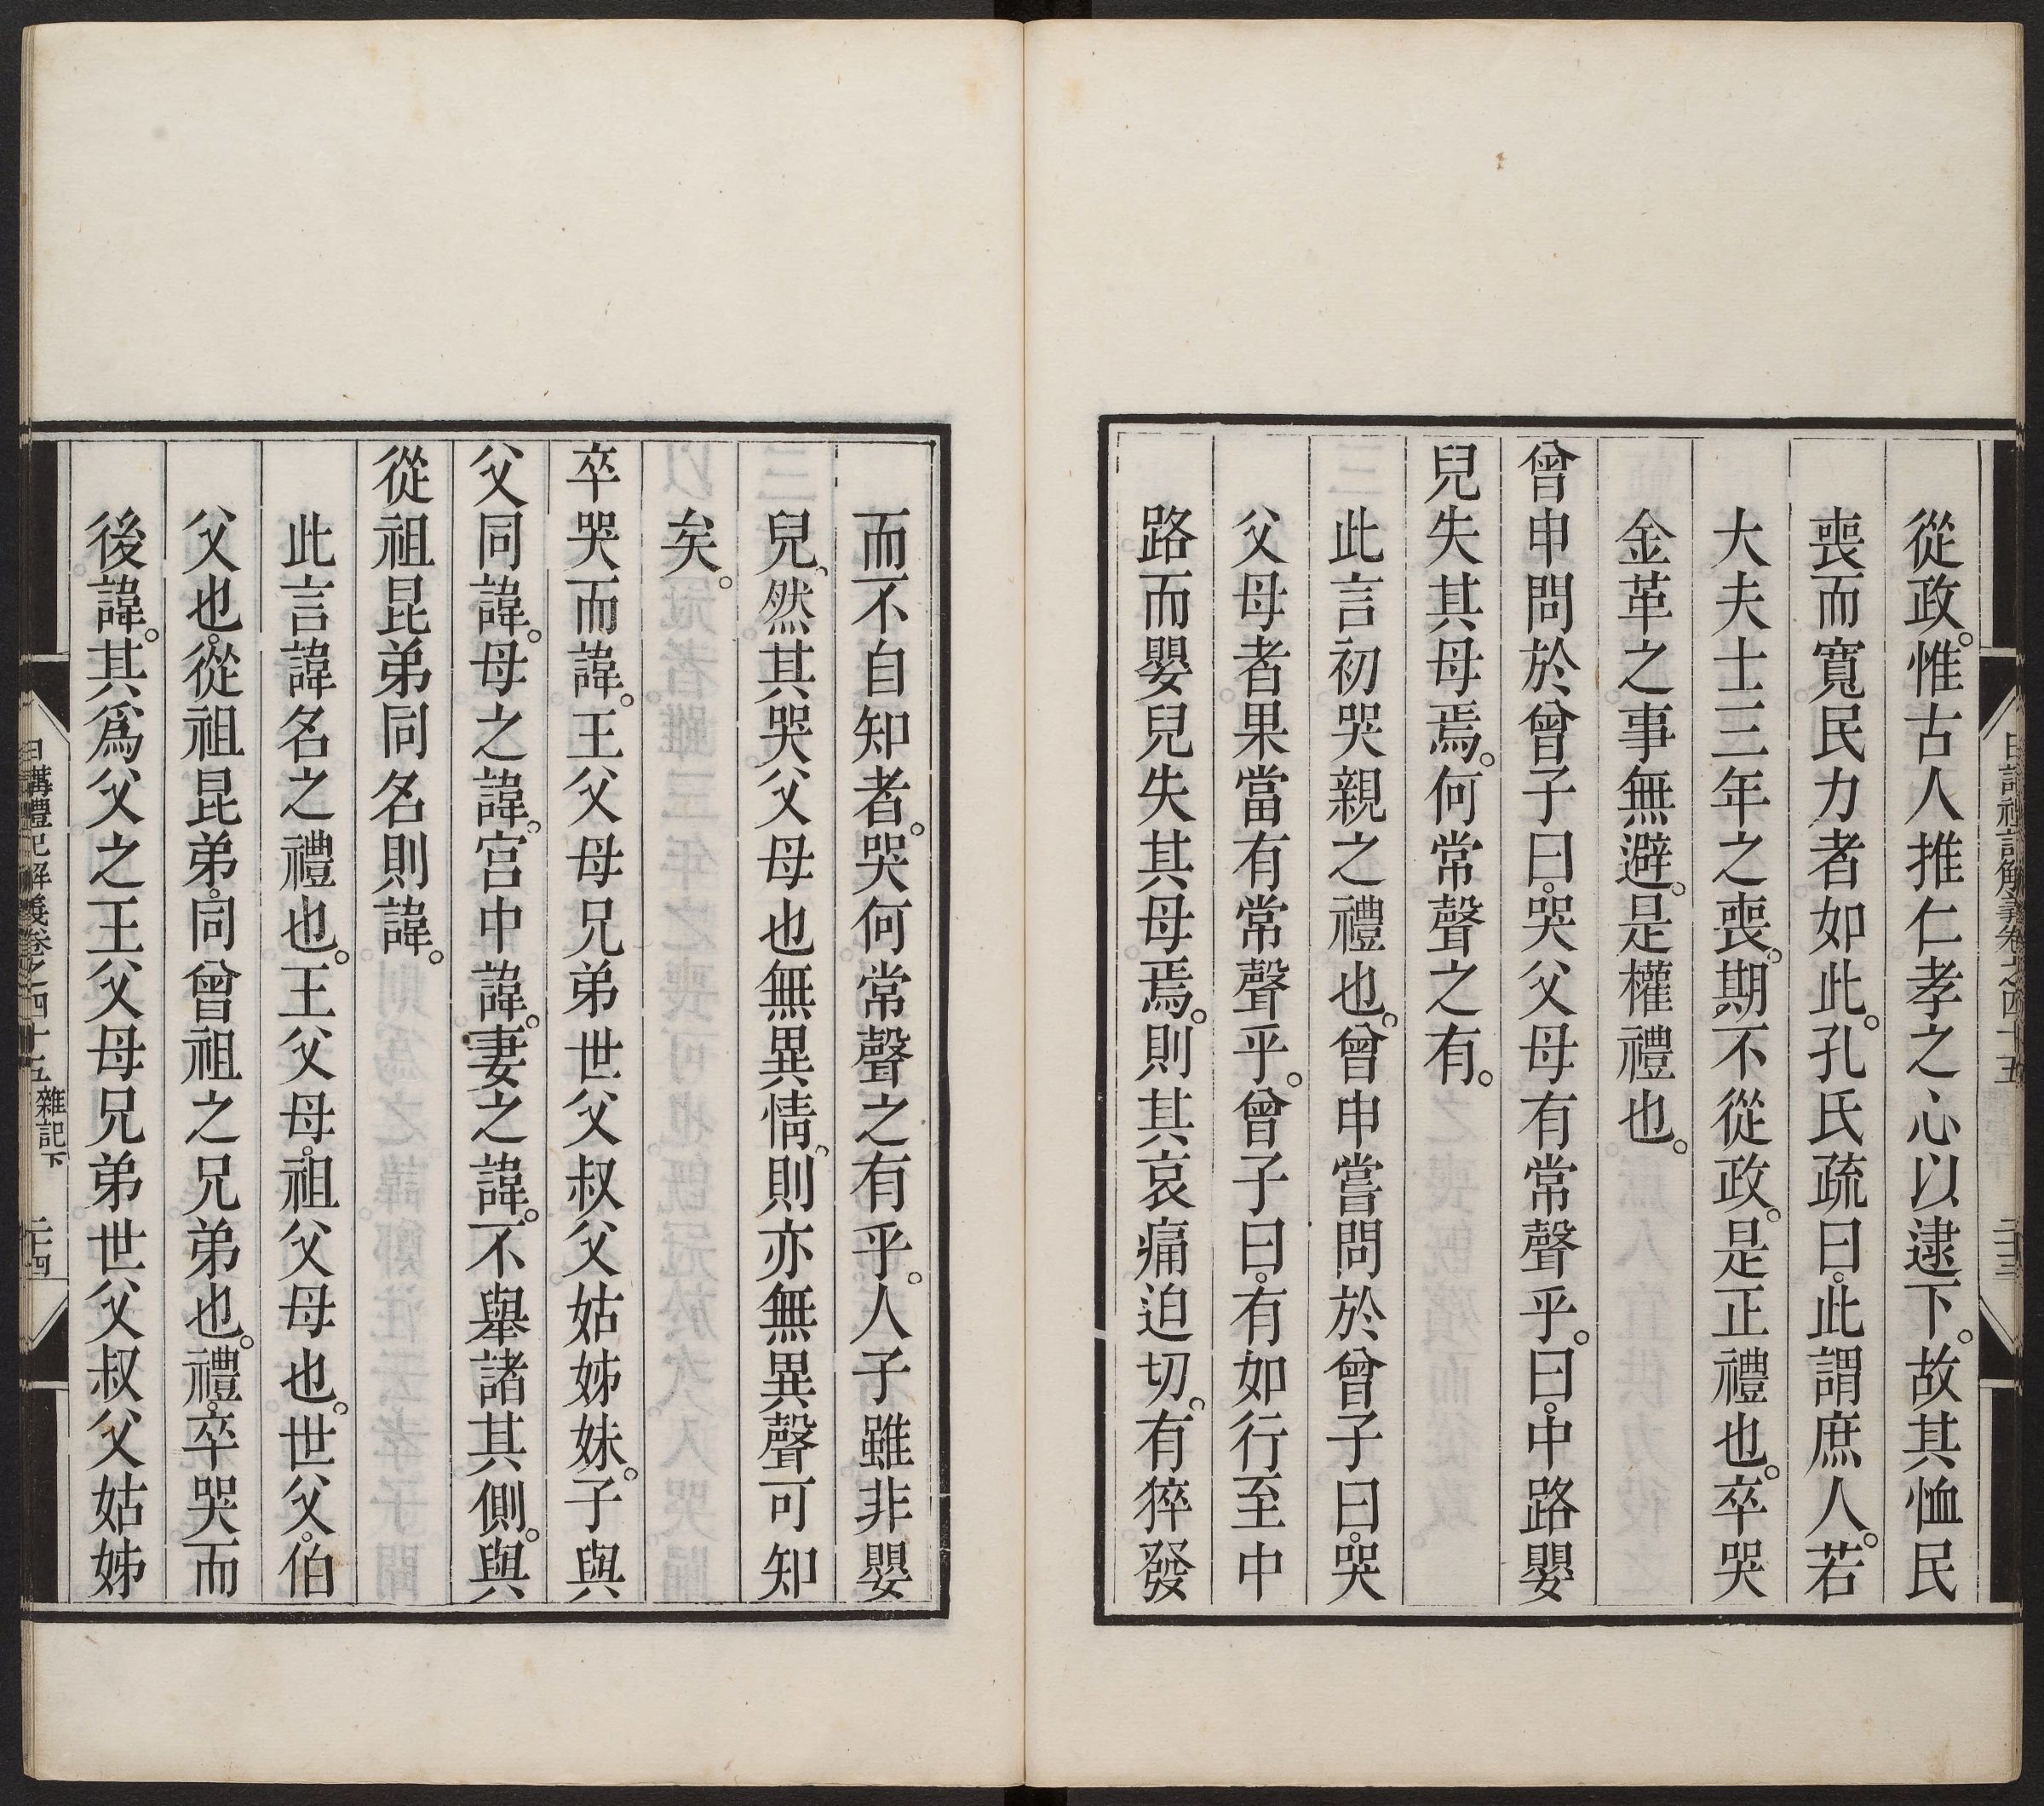 從政。惟古人推仁孝之心以逮下。故其恤民
喪而寬民力者如此。孔氏疏曰。此謂庶人。若
大夫士三年之喪。期不從政。是正禮也。卒哭
金革之事無避。是權禮也。
曾申問於曾子曰。哭父母有常聲乎。曰。中路嬰
兒失其母焉。何常聲之有。
此言初哭親之禮也。曾申嘗問於曾子曰。哭
父母者果當有常聲乎。曾子曰。有如行至中
路而嬰兒失其母焉。則其哀痛迫切。有猝發
而不自知者。哭何常聲之有乎。人子雖非嬰
兒、然其哭父母也無異情、則亦無異聲可知
矣。
卒哭而諱。王父母兄弟世父叔父姑姊妹。子與
父同諱。母之諱。宮中諱。妻之諱。不舉諸其側。與
從祖昆弟同名則諱。
此言諱名之禮也。王父母。祖父母也。世父。伯
父也。從祖昆弟。同曾祖之兄弟也。禮。卒哭而
後諱。其爲父之王父母兄弟世父叔父姑姊
日講禮記解義卷之四十五 雜記下 二十四